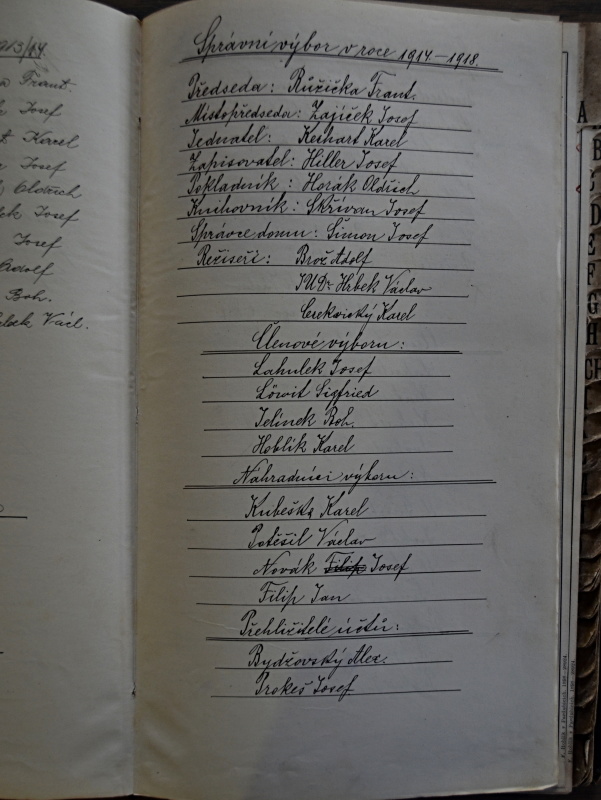 1913/14
Frant.
Josef
Karel
Josef
Oldřich
Josef
Josef
Adolf
Boh.
Václ.
Správní výbor v roce 1914–1918.
Předseda: Růžička Frant.
Místopředseda: Zajíček Josef
Jednatel: Kerhart Karel
Zapisovatel: Hiller Josef
Pokladník: Horák Oldřich
Knihovník: Skřivan Josef
Správce domu: Šimon Josef
Režiseři: Brož Adolf
JUDr. Hrbek Václav
Cerekvický Karel
Členové výboru:
Lahulek Josef
Löwit Sigfried
Jelínek Boh.
Hoblík Karel
Náhradníci výboru:
Kubeška Karel
Potěšil Václav
Novák Filip Josef
Filip Jan
Přehlížitelé účtů:
Bydžovský Alex.
Prokeš Josef
A
B
C
D
E
F
G
H
CH